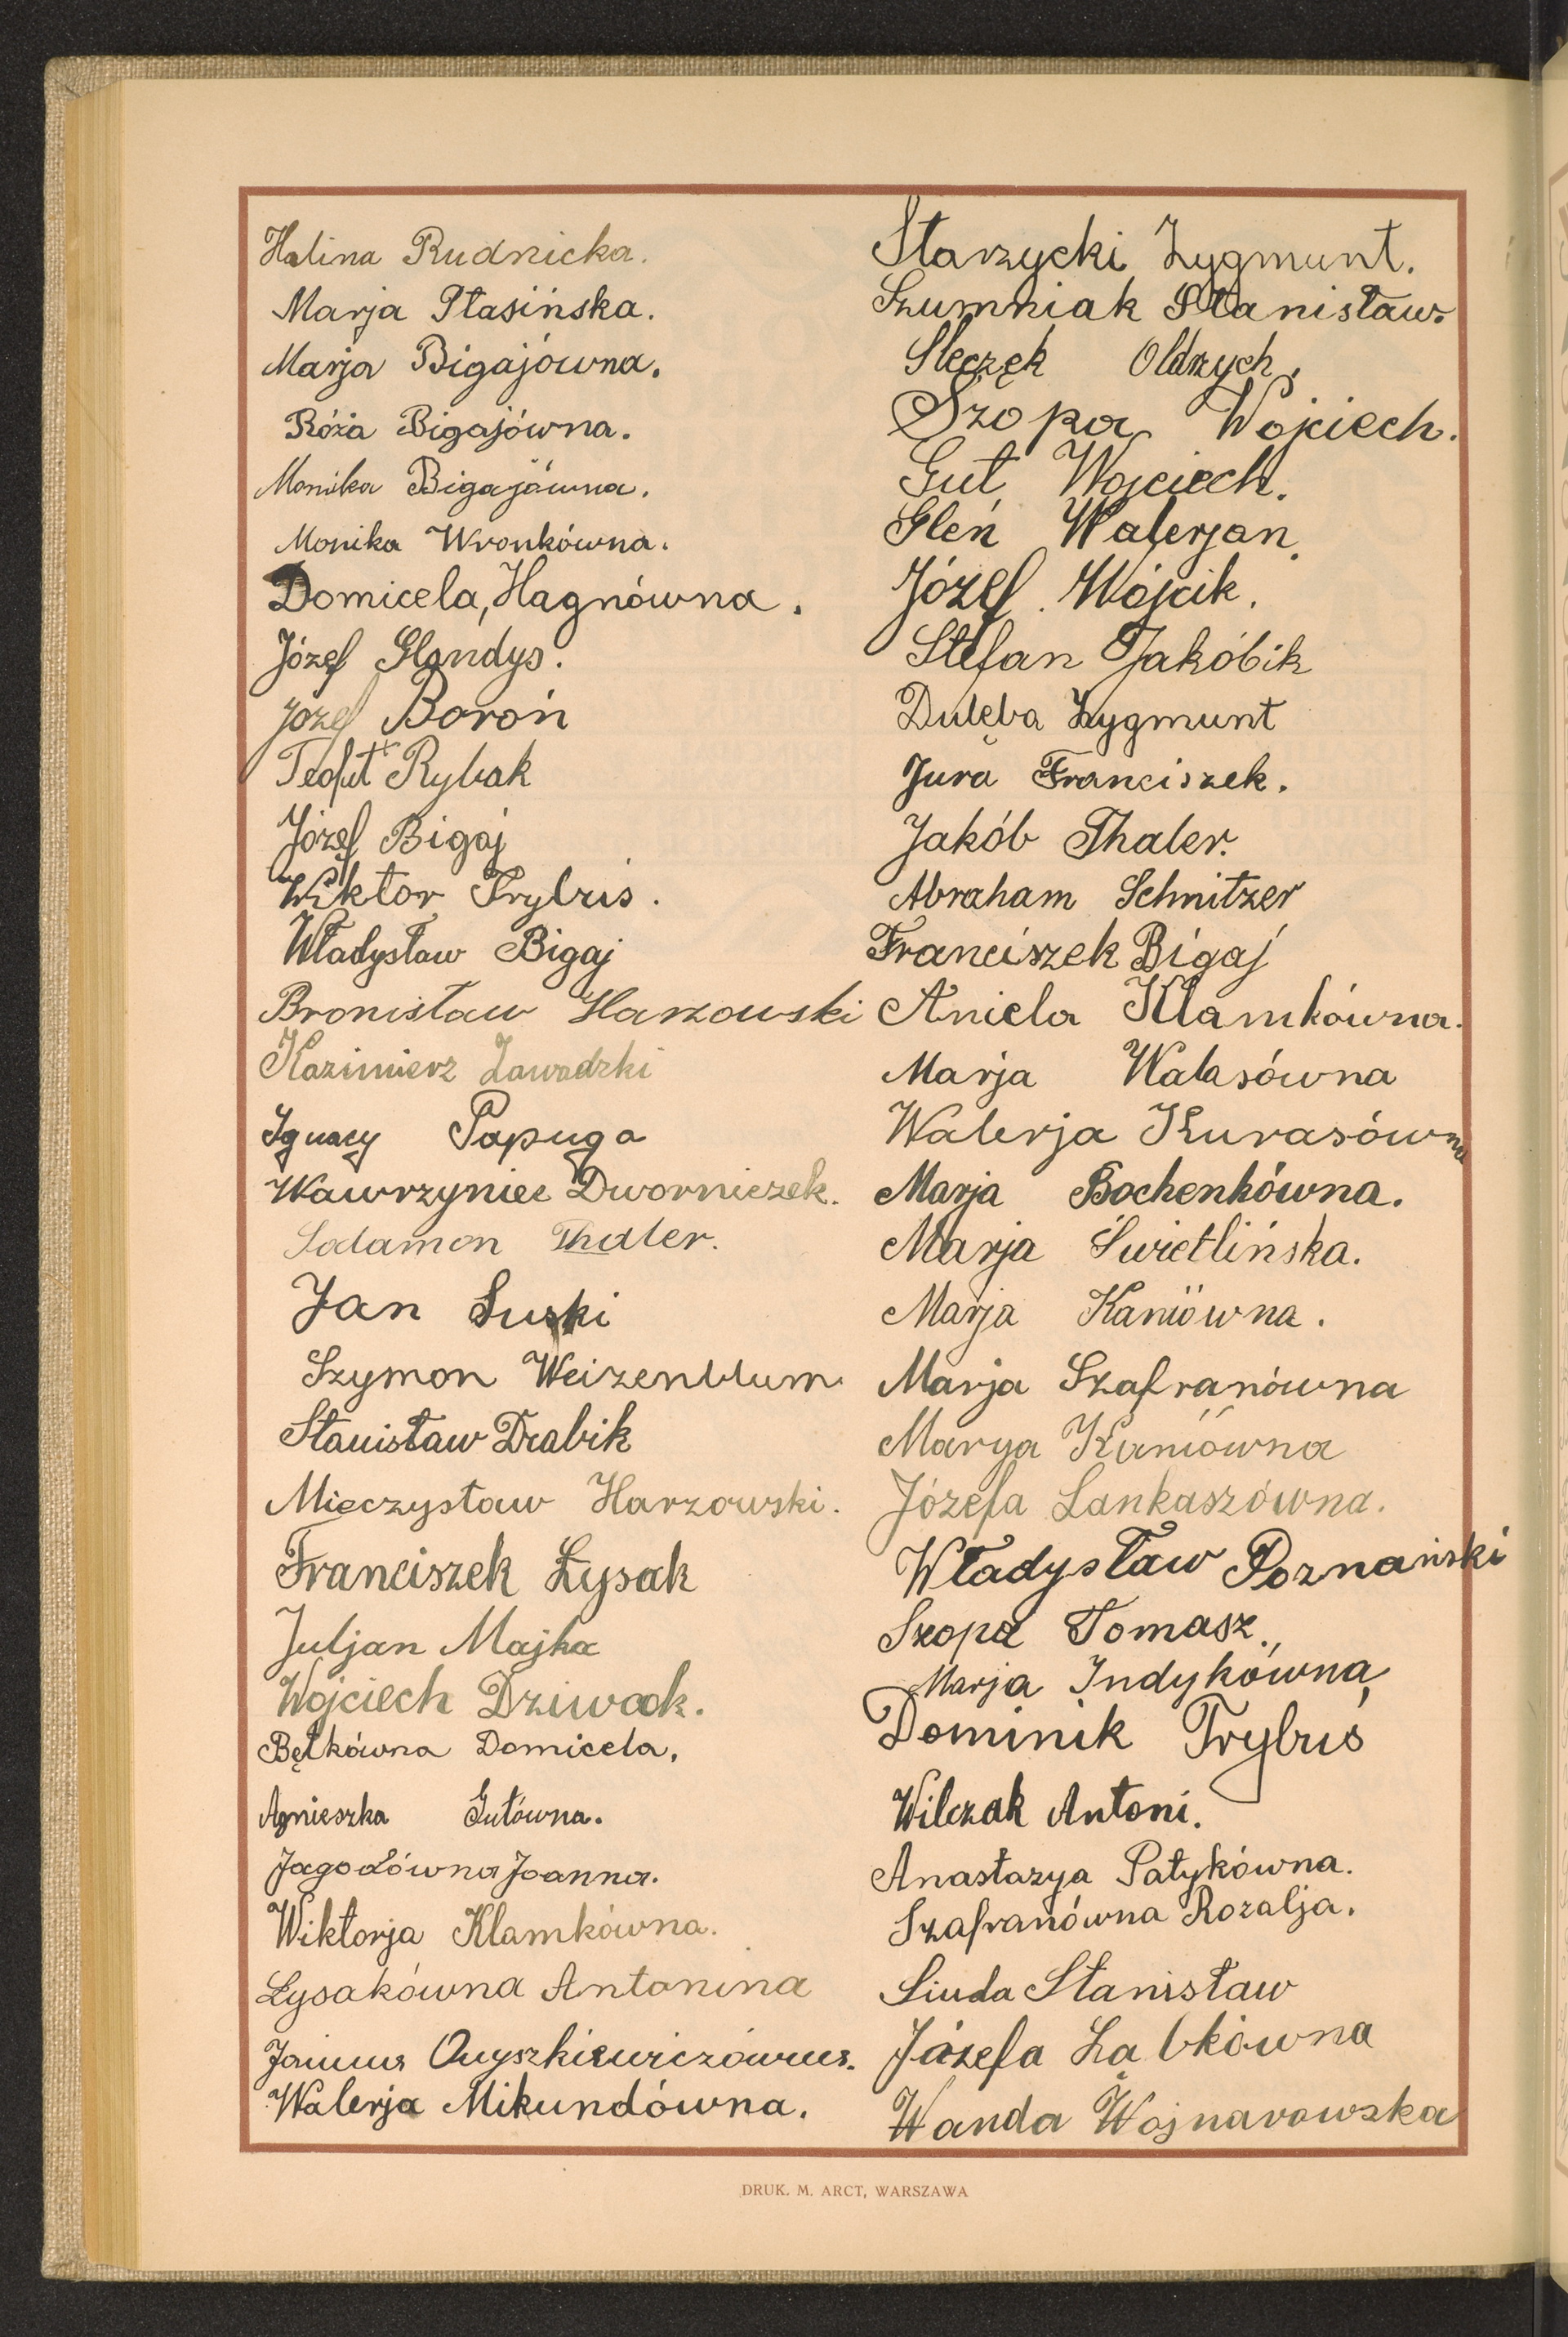 Halina Rudnicka.
Marja Ptasińska.
Marja Bigajówna.
Róża Bigajówna.
Monika Bigajówna.
Monika Wronkówna.
Domicela, Hagnówna.
Józef Glondys.
Józef Boroń
Teofil Rybak
Józef Bigaj
Wiktor Trybuś.
Władysław Bigaj
Bronisław Harzowski
Kazimierz Zawadzki
Ignacy Papuga
Wawrzyniec Dworniczek.
Salamon Thaler.
Jan Suski
Szymon Weizenblum
Stanisław Drabik
Mieczysław Harzowski.
Franciszek Łysak
Juljan Majka
Wojciech Dziwak.
Bętkówna Domicela,
Agnieszka Gutówna.
Jagodówna Joanna.
Wiktorja Klamkówna.
Łysakówna Antonina
Janina
Walerja Mikundówna.
Starzycki Zygmunt.
Szumniak Stanisław.
Śleczek Oldrzych.
Szopa Wojciech.
Gut Wojciech.
Gleń Walerjan.
Józef Wójcik.
Stefan Jakóbik
Dulęba Zygmunt
Jura Franciszek.
Jakób Thaler.
Abraham Schnitzer
Franciszek Bigaj
Aniela Klamkówna.
Marja Walasówna
Walerja Kurasówna
Marja Bochenkówna.
Marja Świetlińska.
Marja Kaniówna.
Marja Szafranówna
Marya Kaniówna
Józefa Lankaszówna.
Władysław Poznański
Szopa Tomasz.
Marja Indykówna
Dominik Trybuś
Wilczak Antoni.
Anastazya Patykówna.
Szafranówna Rozalja.
Siuda Stanisław
Józefa Ząbkówna
Wanda Wojnarowska
DRUK. M. ARCT, WARSZAWA